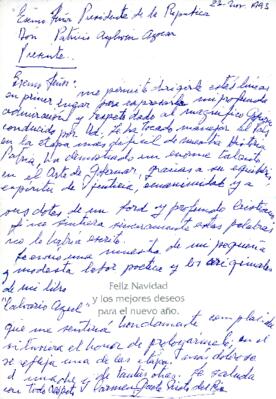 22-Nov. 1993
"Exmo Señor Presidente de la República
Don Patricio Aylwin Azocar
Presente.
Exmo Señor:
me permito dirigirle estas líneas
en primer lugar para expresarle mi profunda
admiración y respeto dado al magnífico
conducido por Ud. Le ha tocado manejar el País
en la etapa más difícil de nuestra Historia
Patria. Ha demostrado un enorme talento
en el Arte de Gobernar, gracias a su equilibrio,
espíritu de justicia, humanidad y a
sus dotes de un
Si no sintiera sinceramente estas palabras
no le habría escrito.
Le envío una muestra de mi pequeña
y modesta labor poética y los originales
de mi libro
Feliz Navidad
"Calvario Azul"
y los mejores deseos
para el nuevo año.
que me sentiría hondamente complacida
si tuviera el honor de prologármelo; en él
se refleja una de las etapas más dolorosas
d una madre y de tantas otras. Le saluda
con todo respeto, Carmen